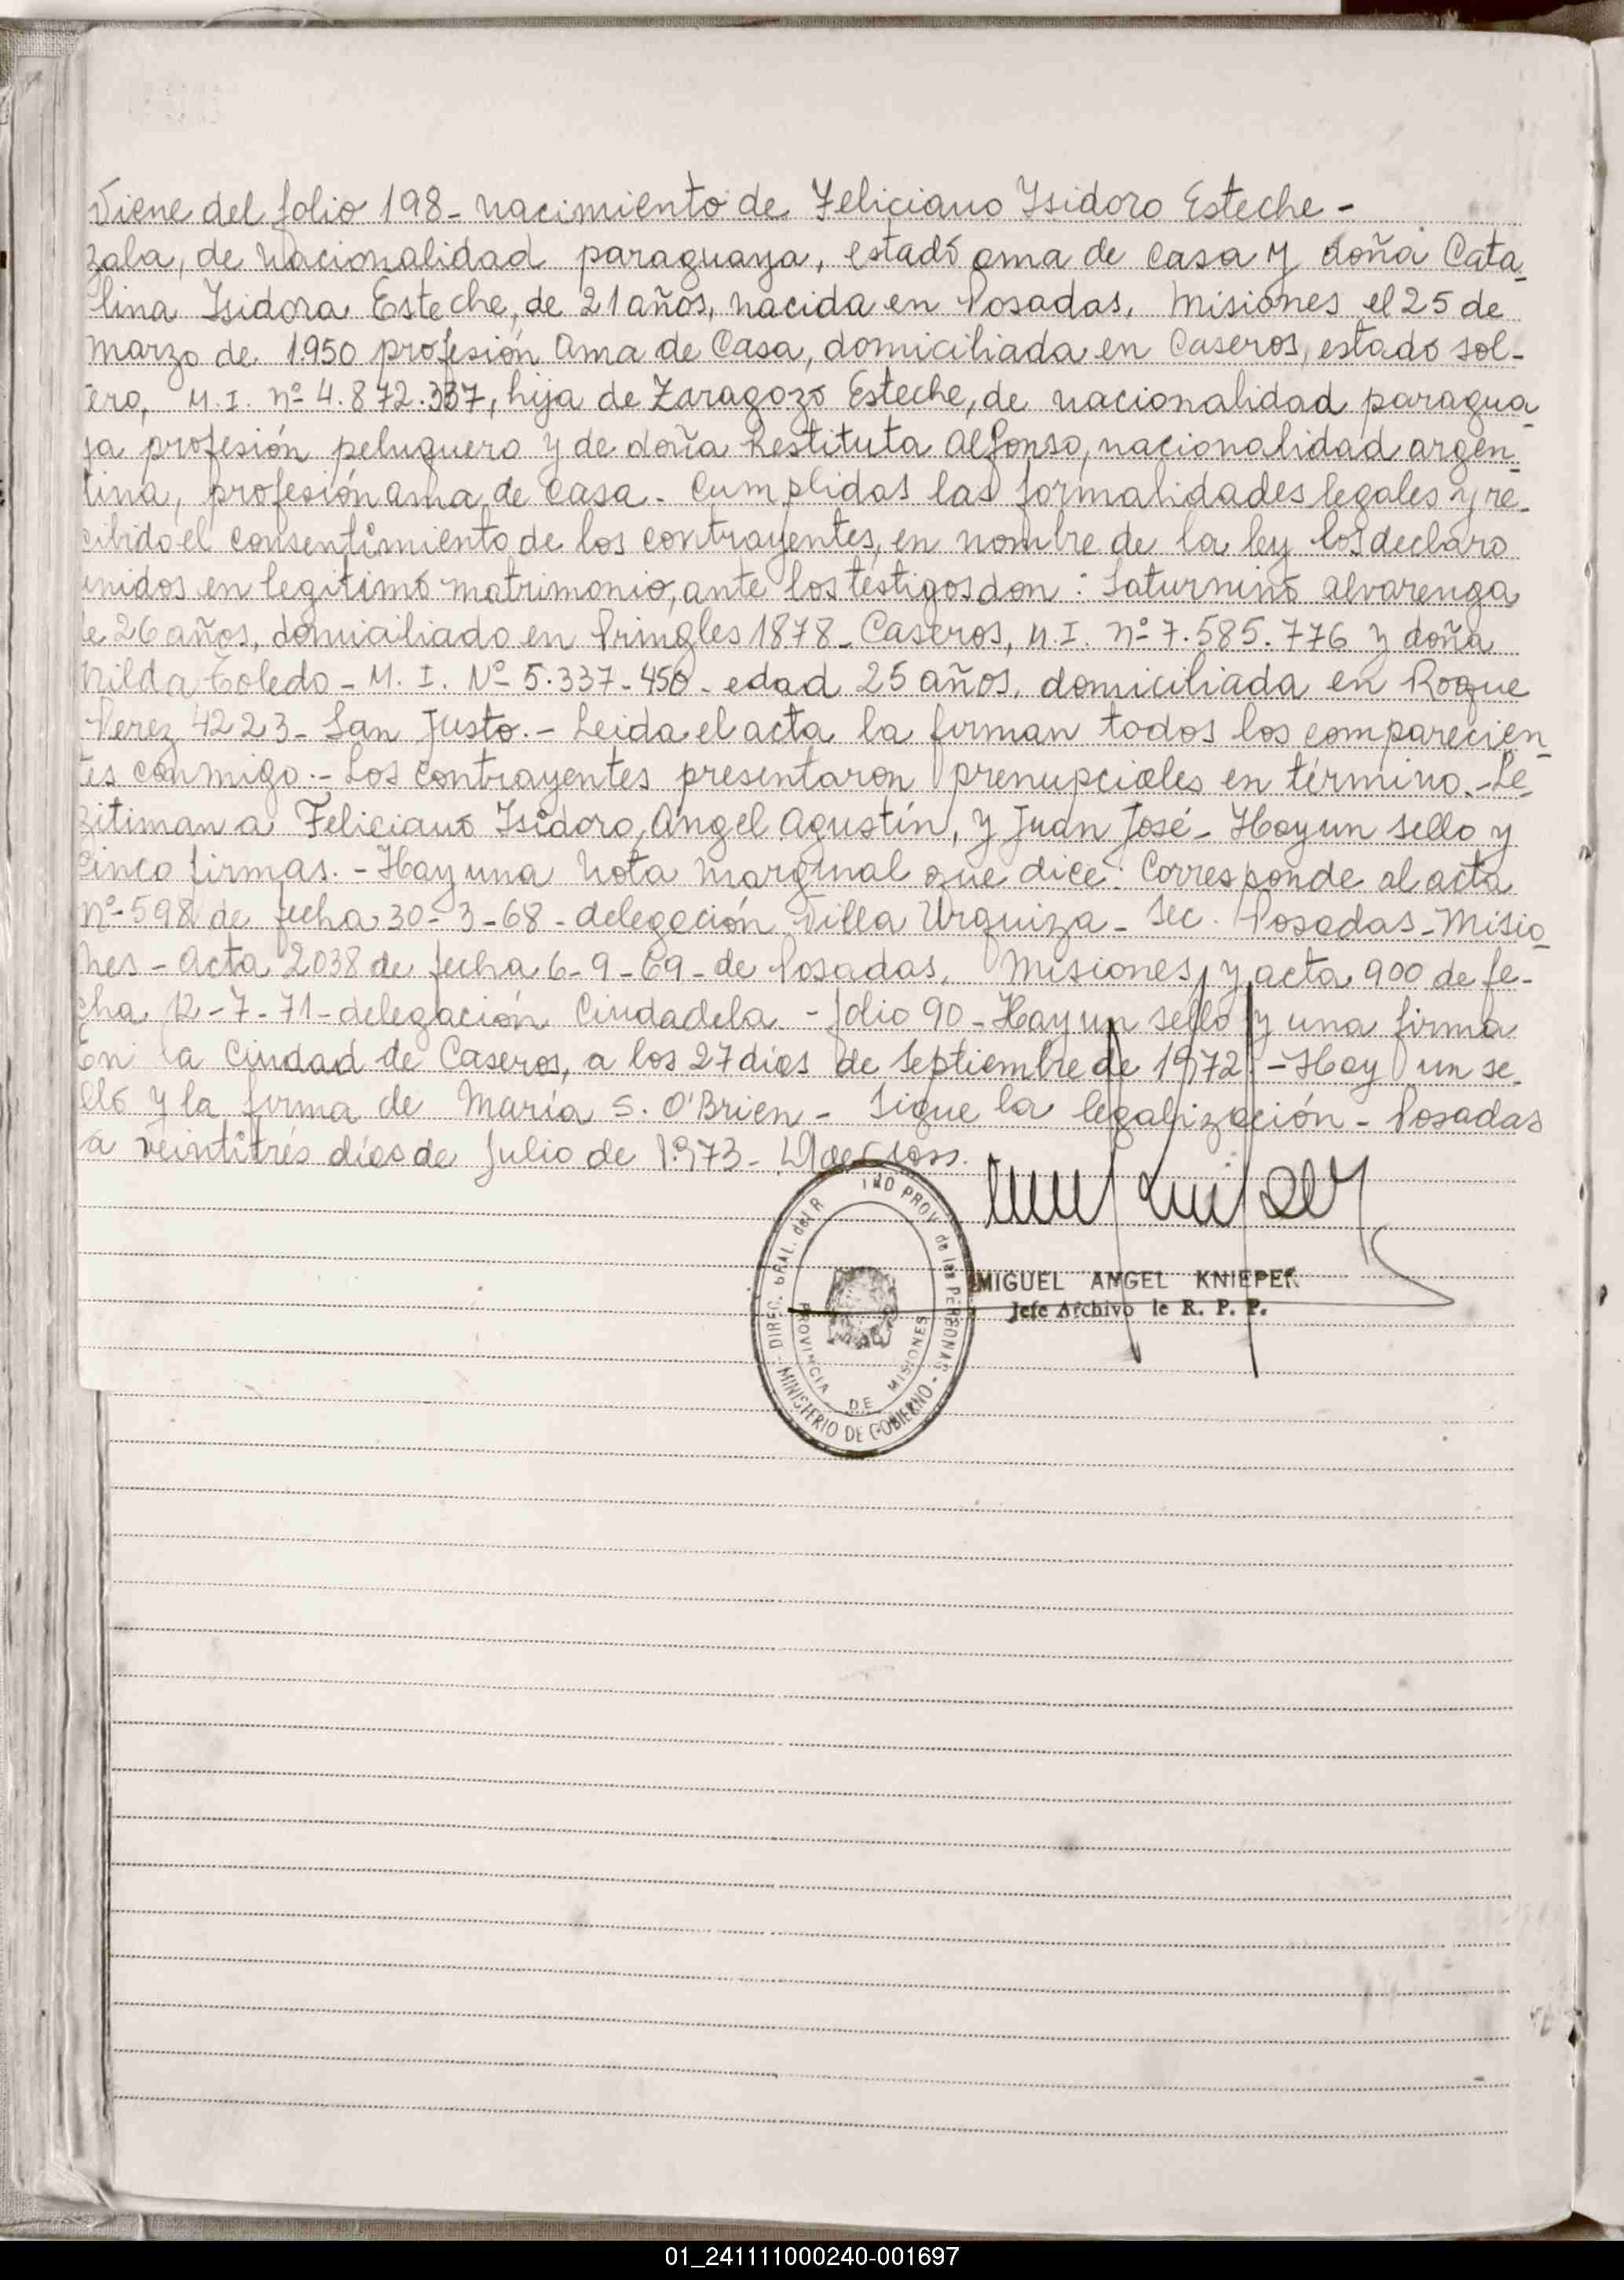 Viene del folio 198- nacimiento de Feliciano Isidoro Esteche -
zala, de nacionalidad paraguaya, estado ama de casa y doña Cata-
lina Isidora Esteche, de 21 años, nacida en Posadas, Misiones el 25 de
marzo de 1950 profesión Ama de Casa, domiciliada en Caseros, estado sol-
tero, M.I. nº 4.872.337, hija de Zaragozo Esteche, de nacionalidad paragua
ya profesión peluquero y de doña Restituta Alfonso, nacionalidad argen-
tina, profesión ama de casa. Cumplidas las formalidades legales y re-
cibido el consentimiento de los contrayentes, en nombre de la ley los declaro
unidos en legitimo matrimonio, ante los testigos don: Saturnino Alvarenga
de 26 años, domiciliado en Pringles 1878- Caseros, M.I. nº 7.585.776 y doña
Nilda Toledo - M. I. Nº 5.337-450 - edad 25 años, domiciliada en Roque
Perez 4223- San Justo.- Leida el acta la firman todos los comparecien-
tes conmigo.- Los contrayentes presentaron prenupciales en término.- Le-
gitiman a Feliciano Isidoro, Angel Agustín, y Juan José - Hay un sello y
cinco firmas. - Hay una nota marginal que dice: Corresponde al acta
nº 598 de fecha 30-3-68 - delegación Villa Urquiza - Sec. Posadas - Misio-
nes - Acta 2038 de fecha 6-9-69 - de Posadas, Misiones, y acta 900 de fe-
cha 12-7-71- delegación Ciudadela - folio 90 - Hay un sello y una firma
En la Ciudad de Caseros, a los 27 días de Septiembre de 1972. - Hay un se-
llo y la firma de María S. O'Brien - Sigue la legalización - Posadas
a veintitrés días de Julio de 1973-
DIREC. GRAL. del R PROV. de las PERSONAS - MINISTERIO DE GOBIERNO -
PROVINCIA DE MISIONES
MIGUEL ANGEL KNIEPER
Jefe Archivo de R. P. P.
01_241111000240-001697